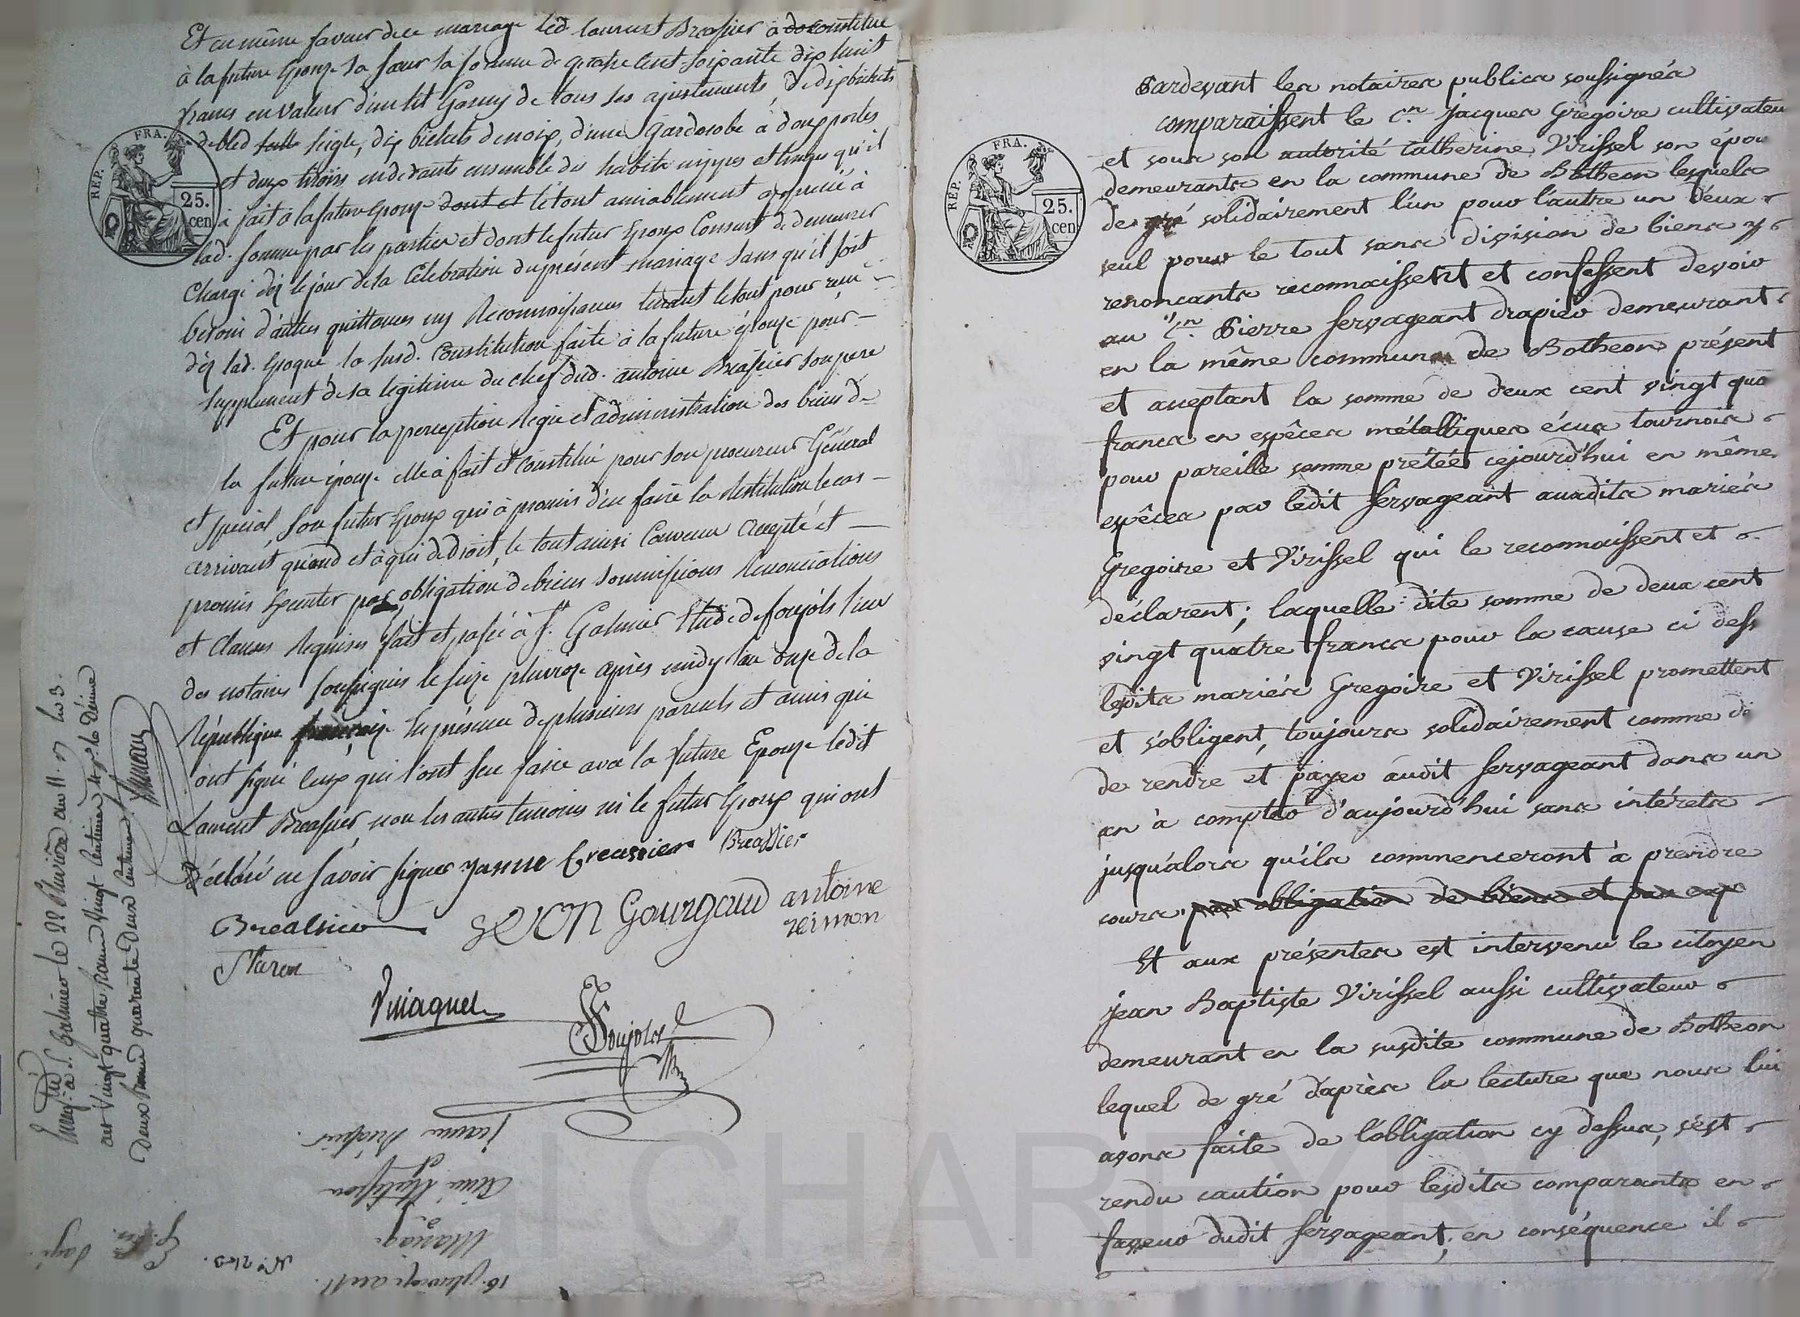 Et en même faveur dece mariage led. Laurent Breassier à de constitue
à la future Epouze sa sœur la somme de quatre cent soixante dix huit
francs en valeur d'un lit Garny de tous ses ajustements, de dix bichets
debled seigle, dix bichets de noix, d'une Gardorobe à deux portes
et deux tiroirs endedants ensemble des habits nippes et linges qu'il
à fait à la future Epouze dont et le tout amiablement apprecié à
lad. somme par les parties et dont le futur Epoux Consent de demeurer
Chargé dez le jour de la Célébration du présent mariage sans qu'il soit
besoin d'autres quittances ny Reconnoissances
déz lad. époque la susd. Constitution faite à la future épouze pour
supplement de sa legitime du chef dud. antoine Breassier son pere
Et pour la perception Regie et administration des biens de
la future épouze elle à fait et Constitué pour son procureur Général
et special, son futur Epoux qui à promis d'en faire la Restitution le cas
arrivant quand et à qui de droit, le tout ainsi Convenu accepté et
promis Executer par obligation de biens soumissions Renonciations
et Clauses Requises fait et passé à St. Galmier Etude de foujols l'un
des notaires soussignés le seize pluvioze après midy l'an onze de la
République française En présence de plusieurs parents et amis qui
ont signé Ceux qui l'ont sçu faire avec la future Epouze ledit
Laurent Breassier non les autres temoins ni le futur Epoux qui ont
Déclaré ne savoir signer Janne Breassier Breassier
Breassier
SEVON Gourgaud antoine
reimon
Viricquel
Foujols
Enregtré à St. Galmier le 22 Pluviôse an 11.
Vingt quatre francs Vingt Centimes
deux francs quarante deux Centimes
16. pluvioze an 11.
Mariage
Janne Breassier
N° 243.
REP. FRA.
25.
cen
REP. FRA.
25.
cen
Pardevant les notaires publics soussignés
comparaissent le c.en Jacques Gregoire cultivateur
et sous son autorité Catherine Virissel son épou
demeurants en la commune de Botheon lesquels
de gré solidairement l'un pour l'autre un d'eux
seul pour le tout sans division de biens y
renonçants reconnaissent et confessent devoir
au C.en Pierre Servageant drapier demeurant
en la même commune de Botheon présent
et acceptant la somme de deux cent vingt qua
francs en espèces métalliques écus tournois
pour pareille somme prêtée cejourd'hui en même
espèces par ledit Servageant auxdits mariés
Gregoire et Virissel qui le reconnaissent et
déclarent; laquelle dite somme de deux cent
vingt quatre francs pour la cause ci dess
lesdits mariés Gregoire et Virissel promettent
et s'obligent, toujours solidairement comme di
de rendre et payer audit Servageant dans un
an à compter d'aujourd'hui sans intérets
jusqu'alors qu'ils commenceront à prendre
cours par obligation de biens et par exp
Et aux présentes est intervenu le citoyen
jean Baptiste Virissel aussi cultivateur
demeurant en la susdite commune de Botheon
lequel de gré d'après la lecture que nous lui
avons faite de l'obligation cy dessus, s'est
rendu caution pour lesdits comparants en
faveur dudit Servageant; en conséquence il